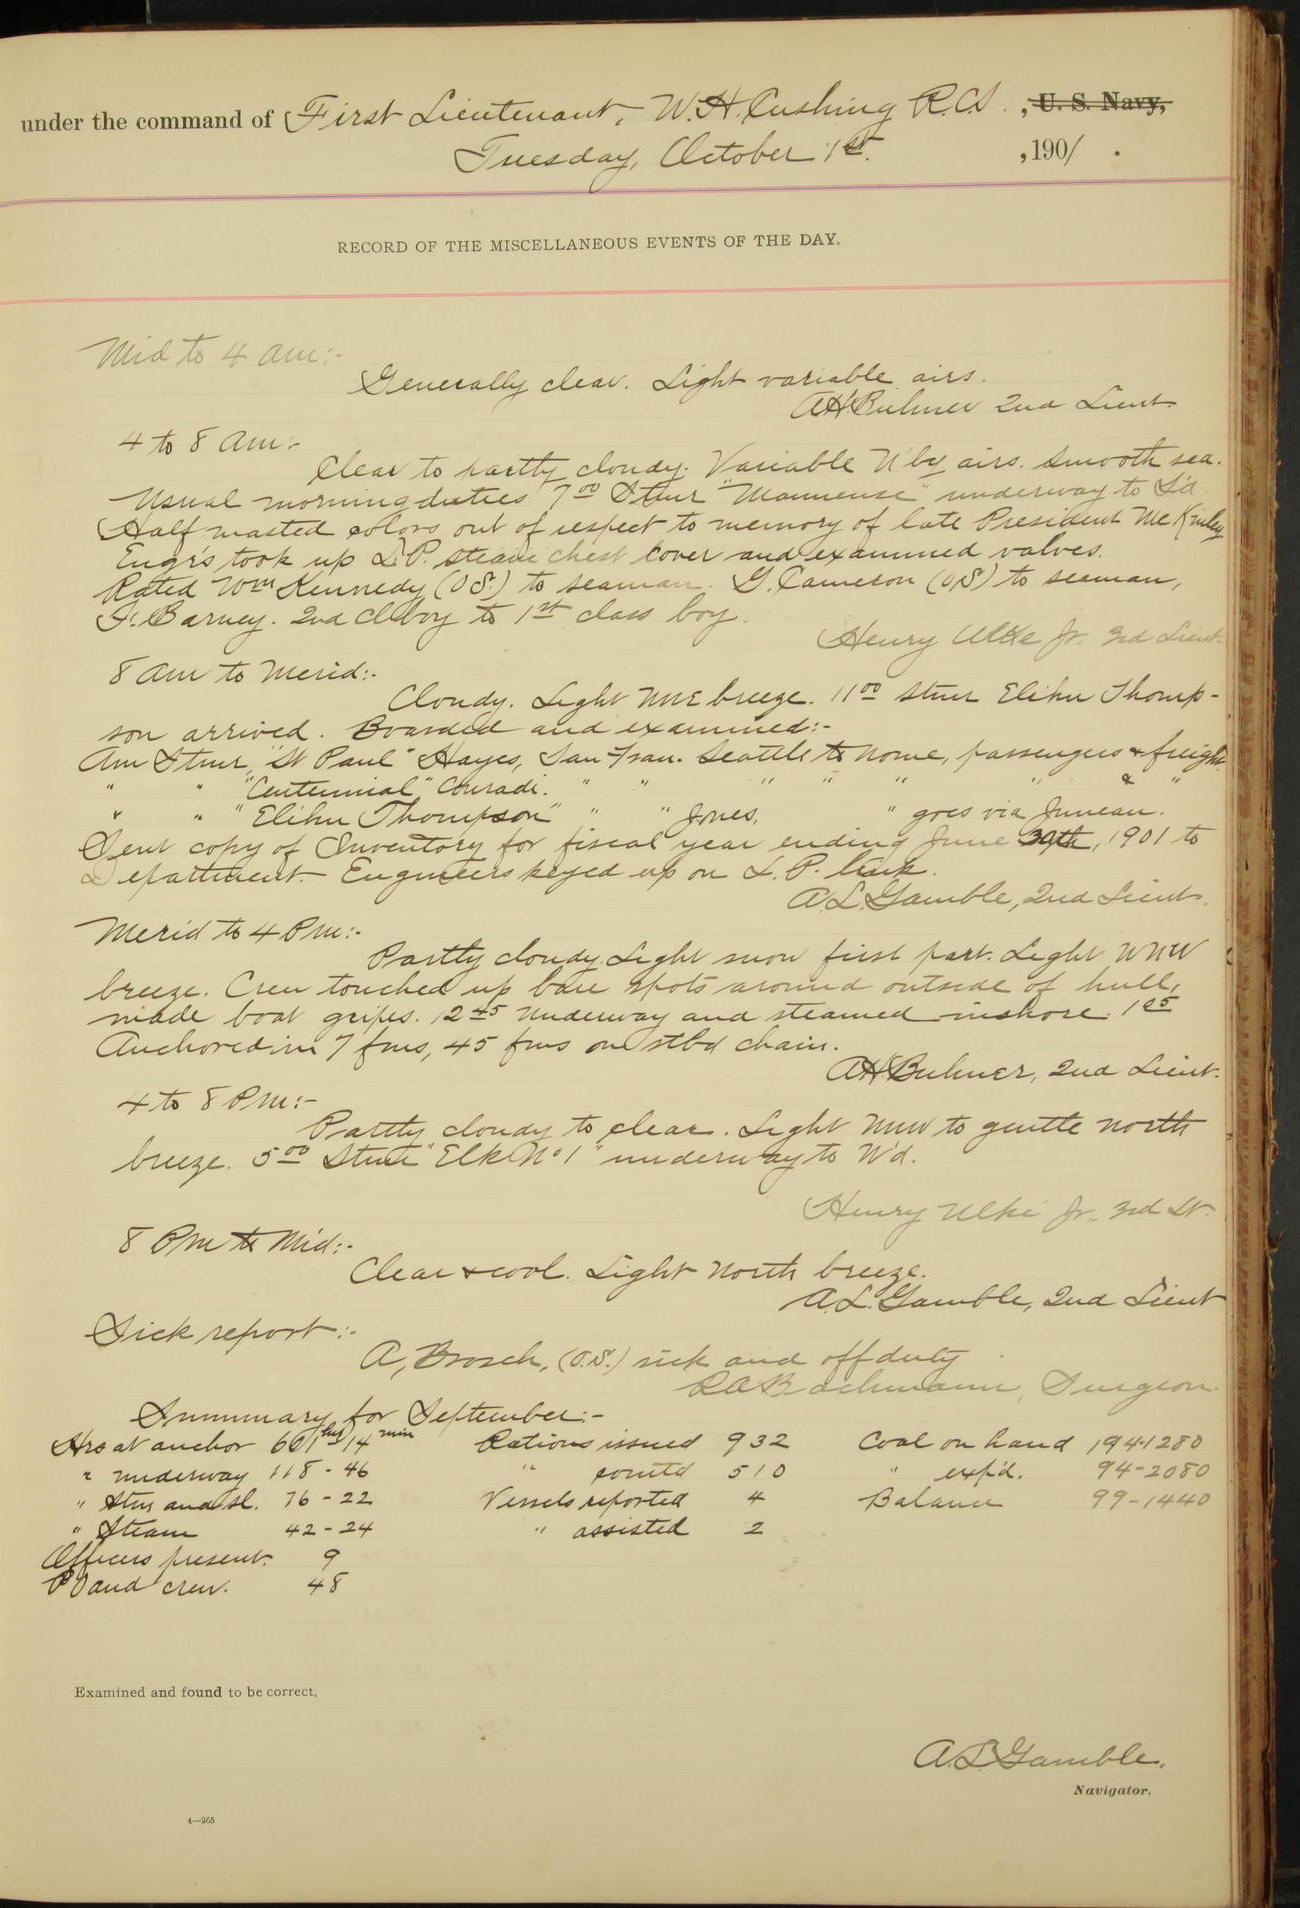 under the command of First Lieutenant, W.H. Cushing R.C.S. , U. S. Navy,
Tuesday, October 1st. , 1901 .
RECORD OF THE MISCELLANEOUS EVENTS OF THE DAY.
Mid to 4 am:-
Generally clear. Light variable airs.
A.H. Buhner 2nd Lieut.
4 to 8 am:-
Clear to partly cloudy. Variable N'ly airs. Smooth sea.
Usual morning duties. 7 00 Stmr "Manuense" underway to S'd
Half masted colors out of respect to memory of late President McKinley
Engr's took up L.P. steam chest cover and examined valves.
Rated Wm Kennedy (O.S.) to seaman. G. Cameron (O.S) to seaman,
F. Barney. 2nd cl boy to 1st class boy.
Henry Ulke Jr. 3rd Lieut.
8 am to Merid:-
Cloudy. Light NNE breeze. 11 00 stmr Elihu Thomp-
son arrived. Boarded and examined:-
Am Stmr "St Paul" Hayes, San Fran. Seattle to Nome, passengers & freight
" " "Centennial" Conradi. " " " " " " & "
" " "Elihu Thompson" " " Jones, " goes via Juneau.
Sent copy of Inventory for fiscal year ending June 30th, 1901 to
Department. Engineers keyed up on L.P. link.
A.L. Gamble, 2nd Lieut.
Merid to 4 Pm:-
Partly cloudy. Light snow first part. Light WNW
breeze. Crew touched up bare spots around outside of hull,
made boat gripes. 12 45 underway and steamed inshore. 1 05
Anchored in 7 fms, 45 fms on stbd chain.
A.H. Buhner, 2nd Lieut.
4 to 8 Pm:-
Partly cloudy to clear. Light NNW to gentle north
breeze. 5 00 Stmr "Elk No 1" underway to W'd.
Henry Ulke Jr., 3rd Lt.
8 Pm to Mid:-
Clear & cool. Light north breeze.
A.L. Gamble, 2nd Lieut
Sick report:-
A, Brosch, (O.S.) sick and off duty
Surgeon.
Summary for September:-
Hrs at anchor 601 hrs 14 min Rations issued 932 Coal on hand 194-1280
" underway 118-46 " comtd 510 " exp'd. 94-2080
" Stm and sl. 76-22 Vessels reported 4 Balance 99-1440
" Steam 42-24 " assisted 2
Officers present. 9
P O and crew. 48
Examined and found to be correct,
A.L. Gamble.
Navigator.
4—265